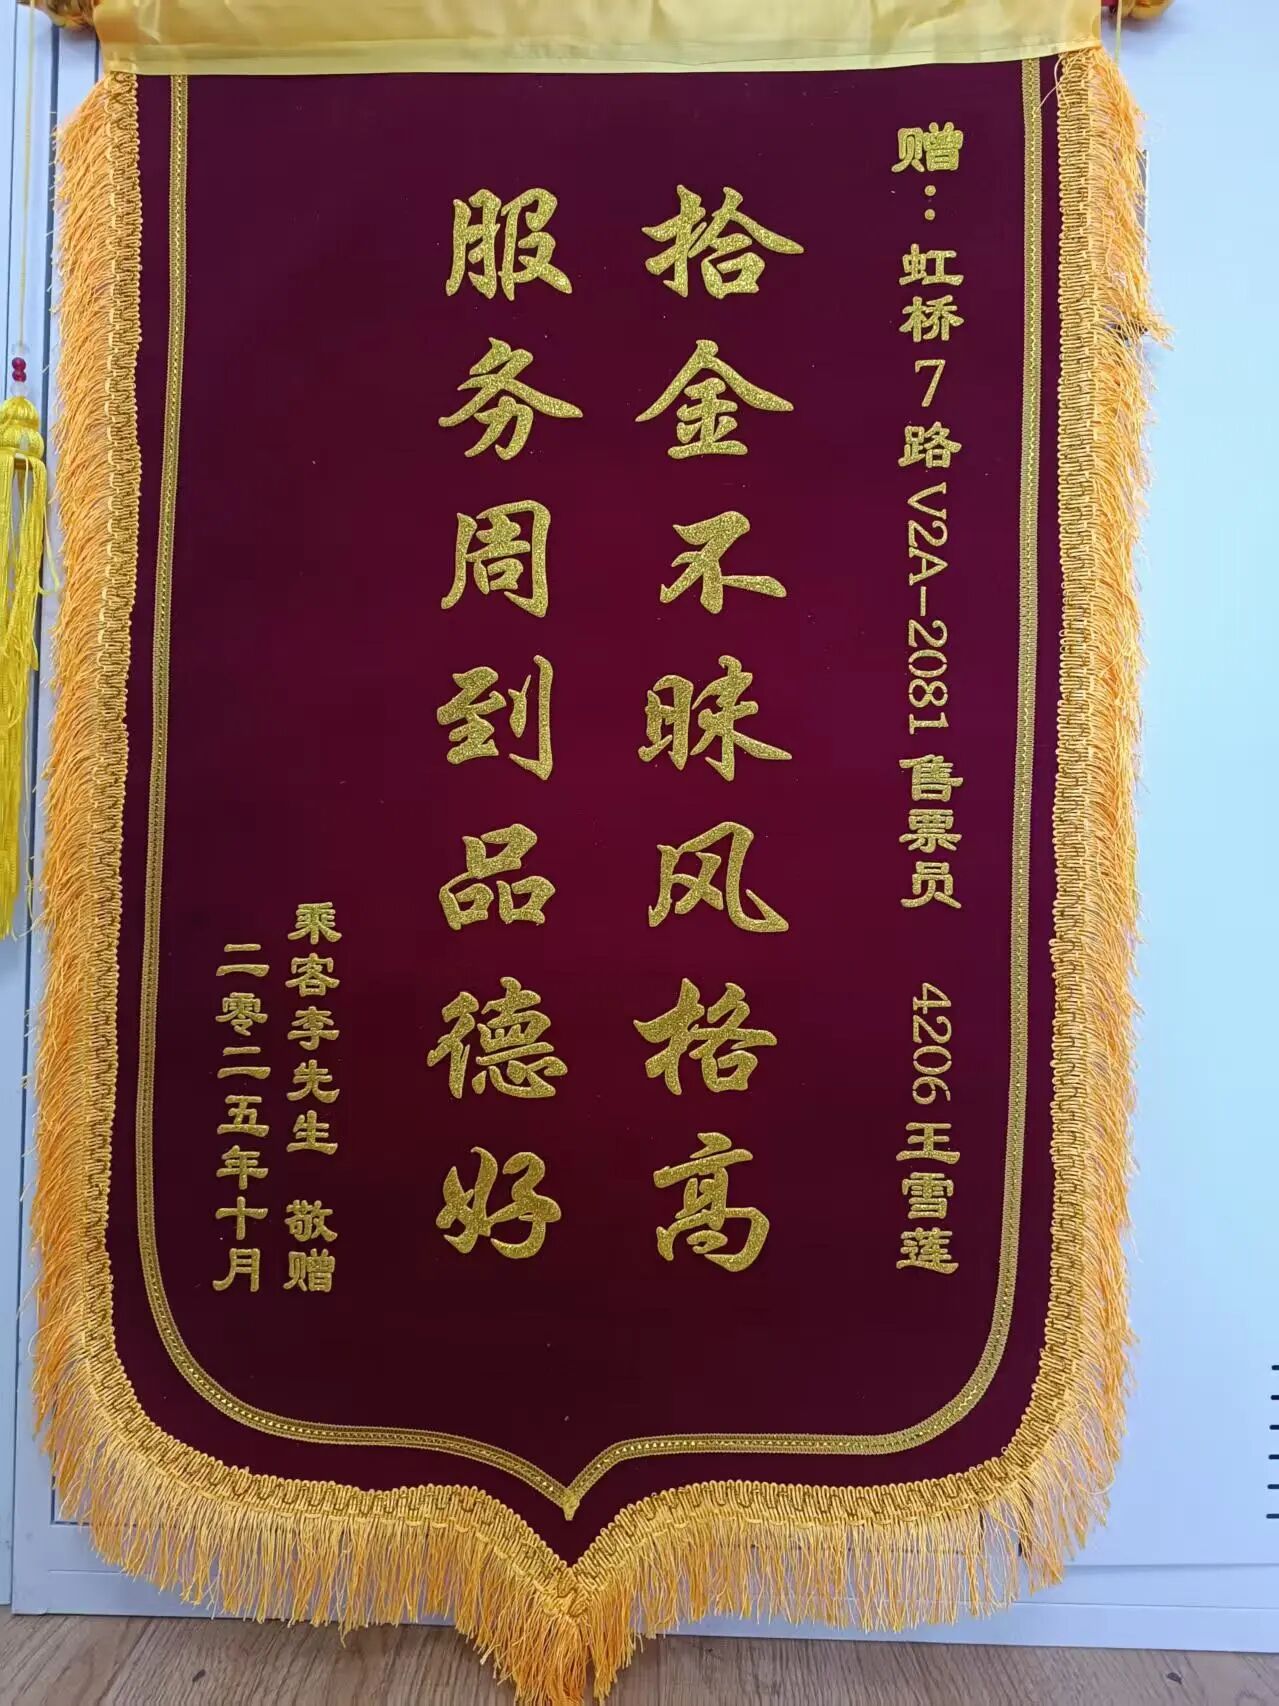 赠：虹桥7路V2A-2081售票员 4206王雪莲
拾金不昧风格高
服务周到品德好
乘客李先生 敬赠
二零二五年十月